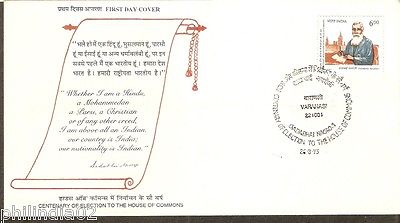 प्रथम दिवस आवरण FIRST DAY COVER
"भले ही मैं एक हिंदू हूं, मुसलमान हूं, पारसी
हूं या ईसाई हूं या अन्य
सबसे पहले मैं एक भारतीय हूं। हमारा देश
भारत है। हमारी राष्ट्रीयता भारतीय है।"
"Whether I am a Hindu,
a Mohammedan
a Parsi, a Christian
or of any other creed,
I am above all an Indian,
our country is India;
our nationality is Indian."
हाउस ऑफ कॉमन्स में निर्वाचन के सौ वर्ष
CENTENARY OF ELECTION TO THE HOUSE OF COMMONS
भारत INDIA
600
वाराणसी
VARANASI
221001
DADABHAI NAOROJI
ELECTION TO THE HOUSE OF COMMONS
philindia02